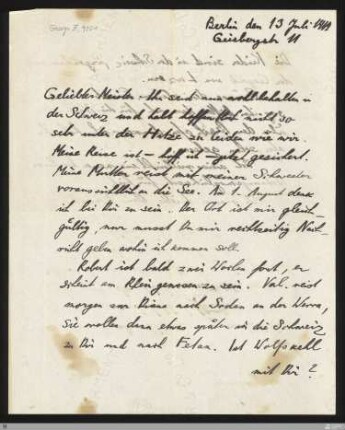 Berlin den 13 Juli 1919
Giesebrechtstr 11
Geliebter Meister. Ihr seid nun wohlbehalten in
der Schweiz und habt hoffentlich nicht so
sehr unter der Hitze zu leiden wie wir.
Meine Reise ist — hoff ich — jetzt gesichert.
Meine Mutter reist mit meiner Schwester
voraussichtlich an die See. Am 1. August denk
ich bei Dir zu sein. Der Ort ist mir gleich-
gültig, nur musst Du mir rechtzeitig Nach-
richt geben wohin ich kommen soll.
Robert ist bald zwei Wochen fort, er
scheint am Rhein gewesen zu sein. Val. reist
morgen vor Diana nach Soden an der Werra,
Sie wollen dann etwas später in die Schweiz
zu Dir und nach Fetan. Ist Wolfskehl
mit Dir?